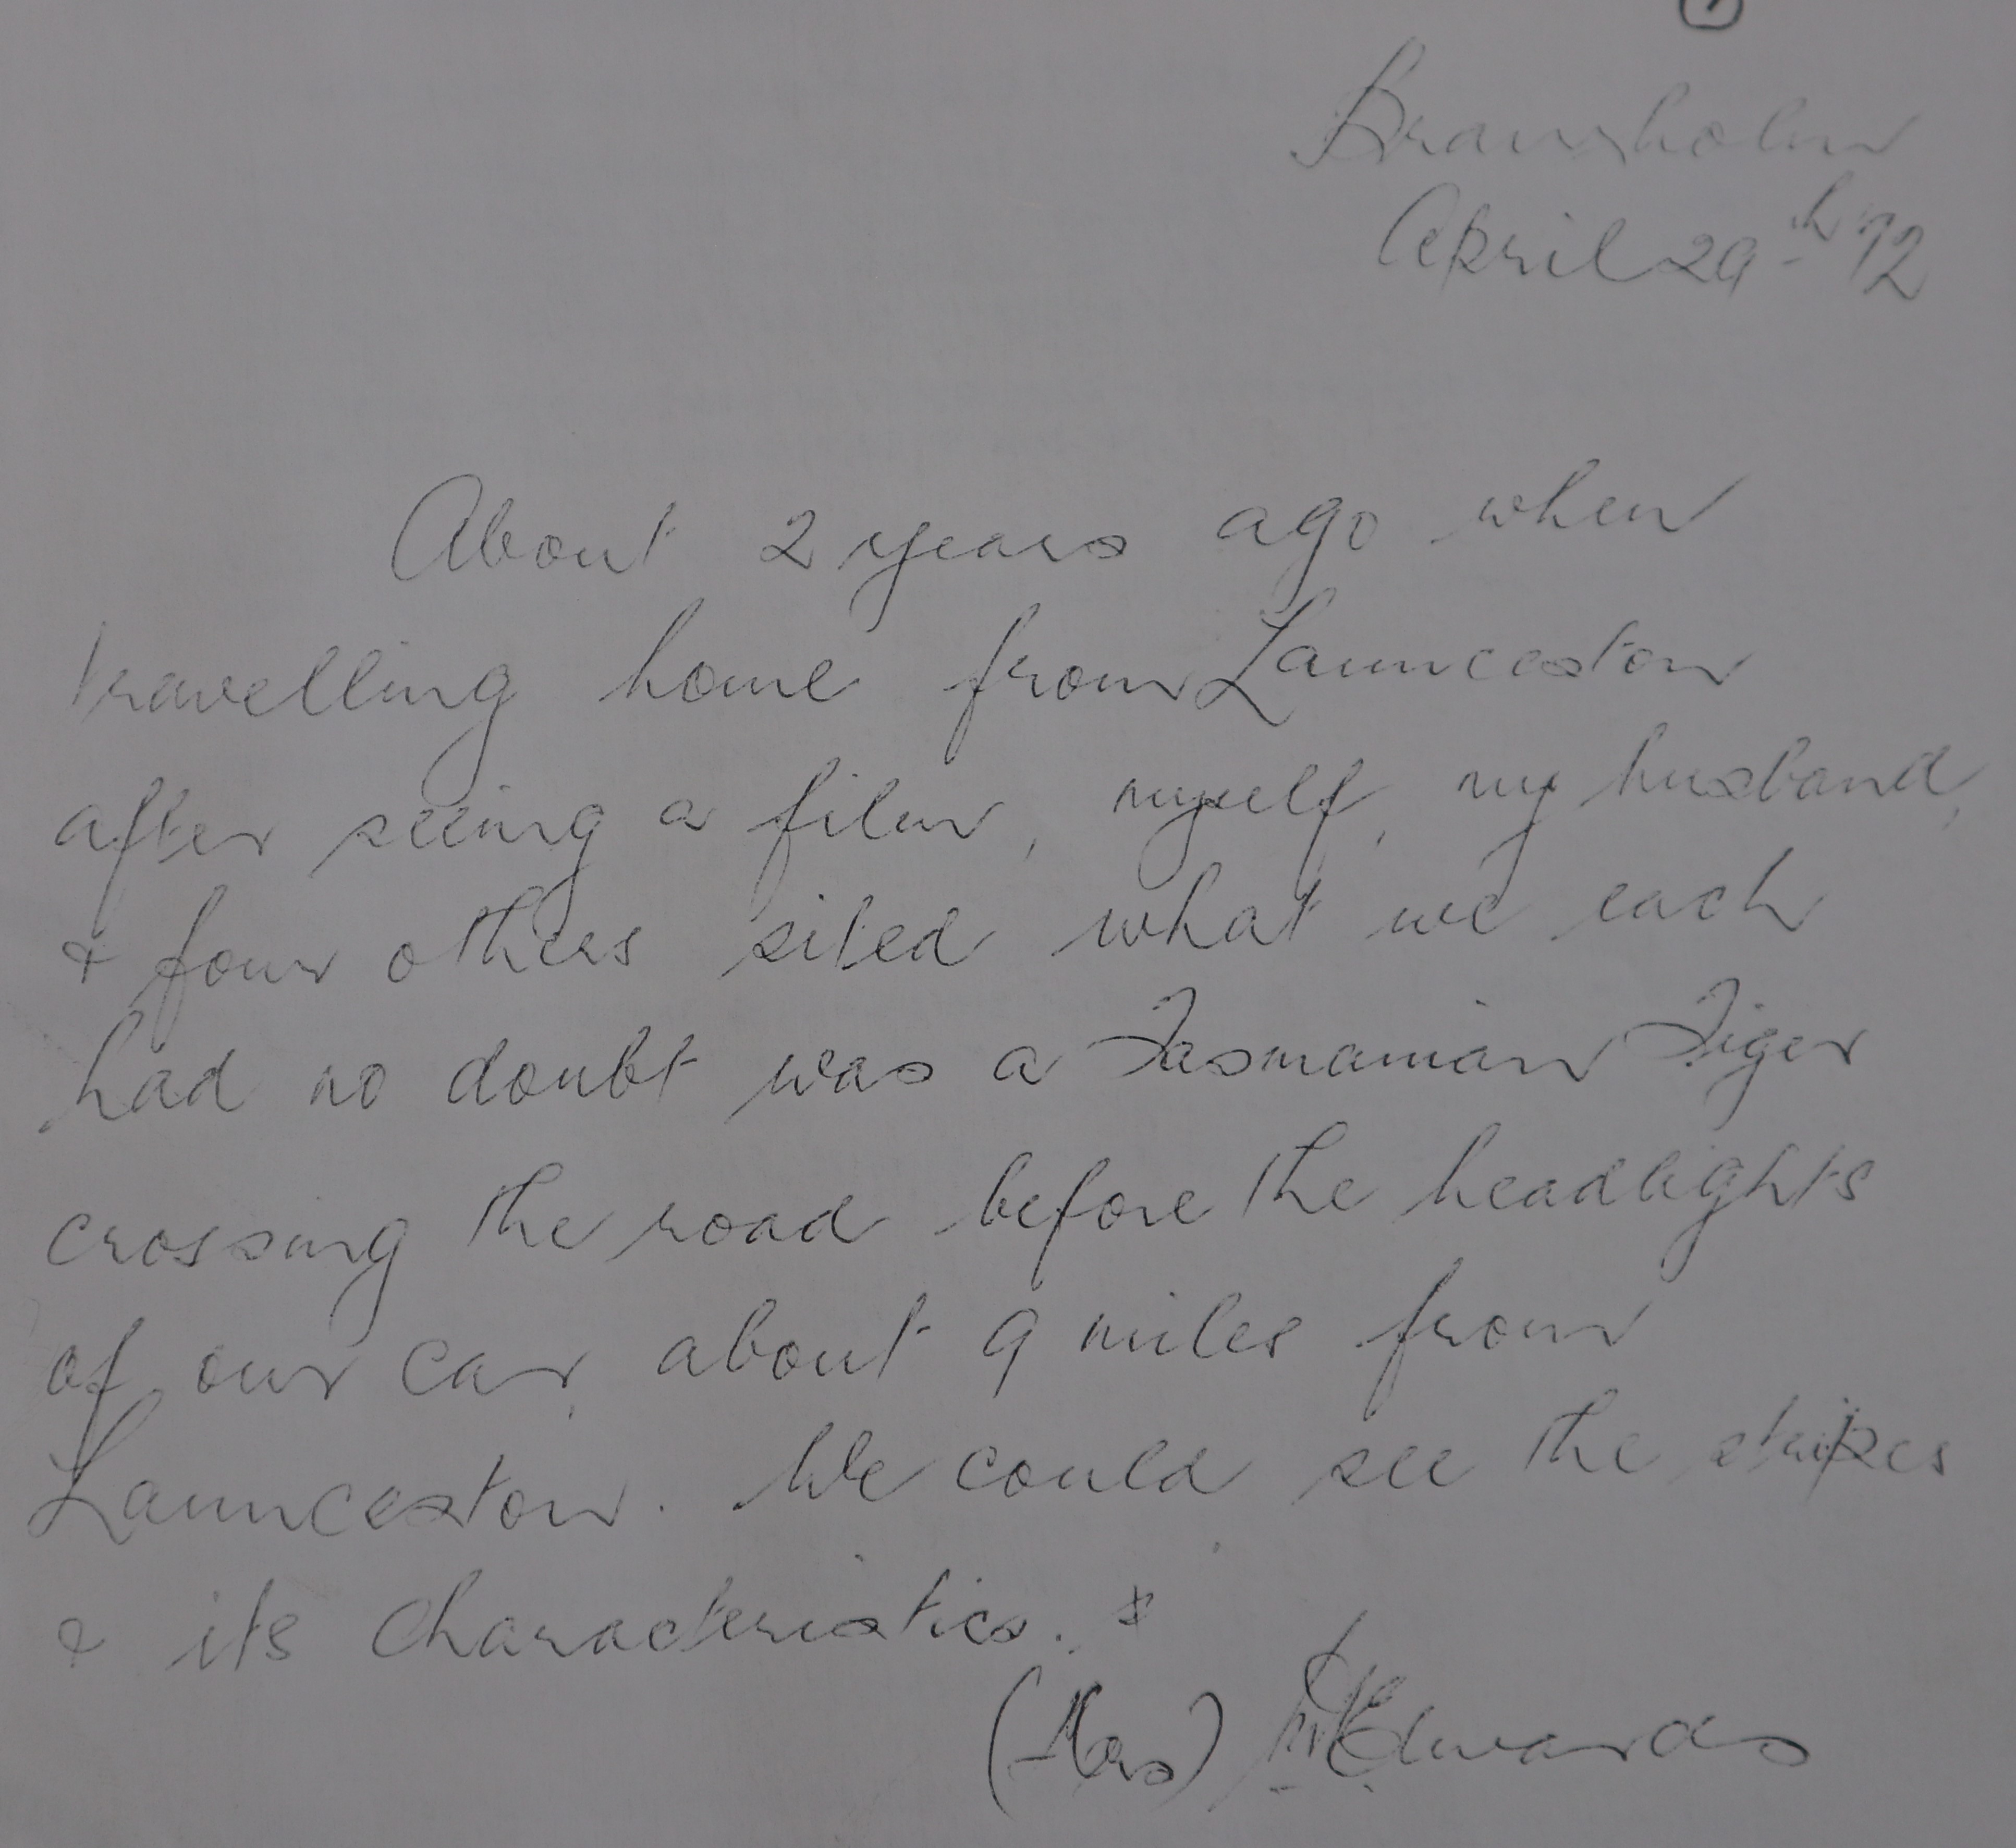 Branxholm
April 29th 72
About 2 years ago when
travelling home from Launceston
after seeing a film, myself, my husband,
& four others sited what we each
had no doubt was a Tasmanian Tiger
crossing the road before the headlights
of our car, about 9 miles from
Launceston. We could see the stripes
& its characteristics. *
(Mrs) Edwards